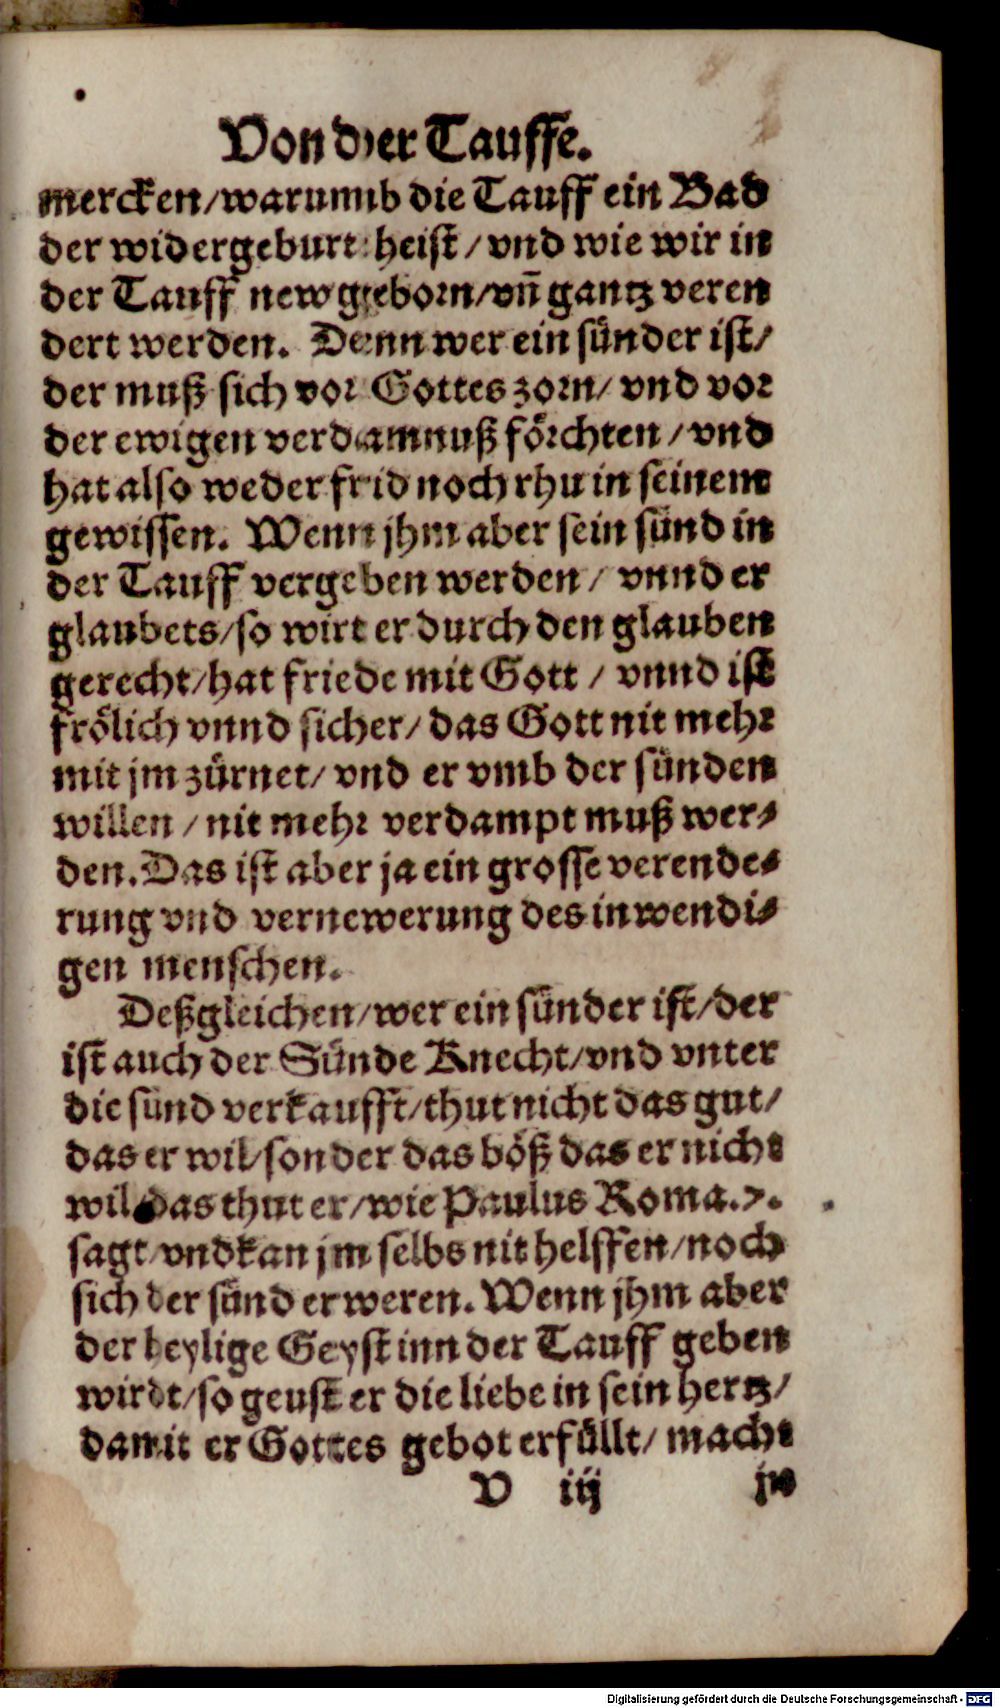 Von der Tauffe.
mercken/warumb die Tauff ein Bad
der widergeburt heist/vnd wie wir in
der Tauff new geborn/vñ gantz veren
dert werden. Denn wer ein sünder ist/
der muß sich vor Gottes zorn/vnd vor
der ewigen verdamnuß förchten/vnd
hat also weder frid noch rhu in seinem
gewissen. Wenn jhm aber sein sünd in
der Tauff vergeben werden/vnnd er
glaubets/so wirt er durch den glauben
gerecht/hat friede mit Gott/vnnd ist
frölich vnnd sicher/das Gott nit mehr
mit jm zürnet/vnd er vmb der sünden
willen/nit mehr verdampt muß wer⸗
den. Das ist aber ja ein grosse verende⸗
rung vnd vernewerung des inwendi⸗
gen menschen.
Deßgleichen/wer ein sünder ist/der
ist auch der Sünde Knecht/vnd vnter
die sünd verkaufft/thut nicht das gut/
das er wil/sonder das böß das er nicht
wil das thut er/wie Paulus Roma.7.
sagt/vnd kan jm selbs nit helffen/noch
sich der sünd erweren. Wenn jhm aber
der heylige Geyst inn der Tauff geben
wirdt/so geust er die liebe in sein hertz/
damit er Gottes gebot erfüllt/macht
V iij
Digitalisierung gefördert durch die Deutsche Forschungsgemeinschaft - DFG